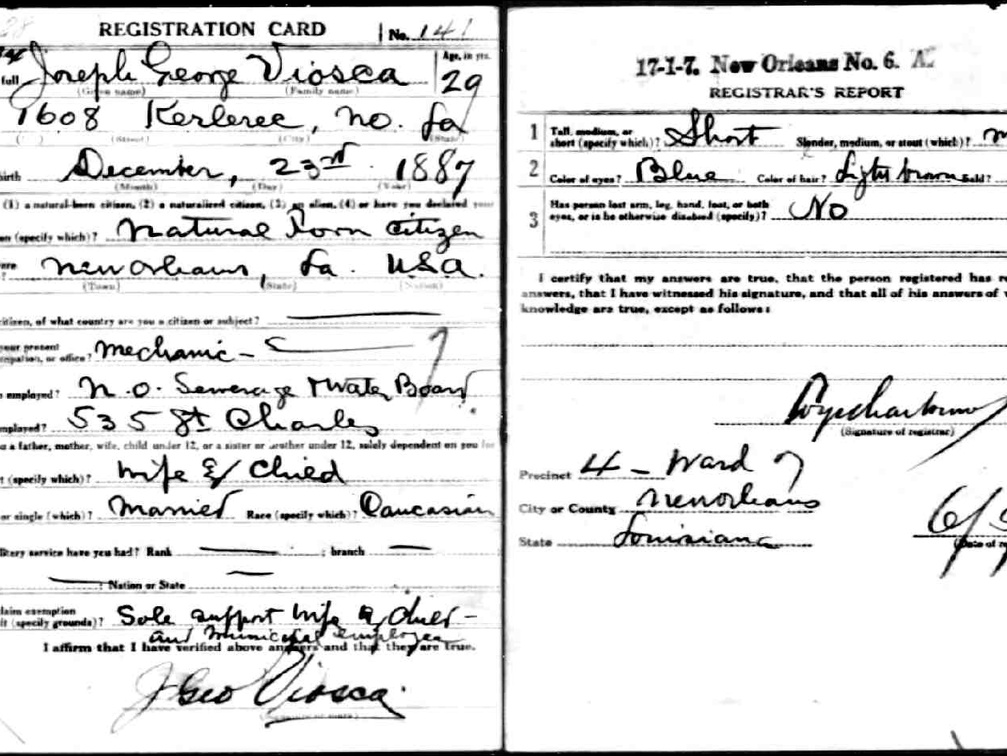 REGISTRATION CARD No. 141
full Joseph George Viosca Age, in yrs. 29
(Given name) (Family name)
1608 Kerlerec, N.O. La
(Street) (City) (State)
birth December, 23rd 1887
(Month) (Day) (Year)
(1) a natural-born citizen, (2) a naturalized citizen, (3) an alien, (4) or have you declared your
(specify which)? Natural Born Citizen
New Orleans, La. USA.
(Town) (State) (Nation)
citizen, of what country are you a citizen or subject?
your present
occupation, or office? Mechanic
employed? N.O. Sewerage & Water Board
employed? 535 St Charles
a father, mother, wife, child under 12, or a sister or brother under 12, solely dependent on you for
(specify which)? Wife & Child
or single (which)? Married Race (specify which)? Caucasian
military service have you had? Rank ; branch
; Nation or State
claim exemption
(specify grounds)? Sole support wife & child -
and Municipal employee
I affirm that I have verified above answers and that they are true.
J Geo Viosca
17-1-7. New Orleans No. 6. A
REGISTRAR'S REPORT
1 Tall, medium, or
short (specify which)? Short Slender, medium, or stout (which)?
2 Color of eyes? Blue Color of hair? Light brown Bald?
3 Has person lost arm, leg, hand, foot, or both
eyes, or is he otherwise disabled (specify)? No
I certify that my answers are true, that the person registered has
answers, that I have witnessed his signature, and that all of his answers of
knowledge are true, except as follows:
(Signature of registrar)
Precinct 4 - Ward 7
City or County New Orleans
State Louisiana
6/5
(Date of